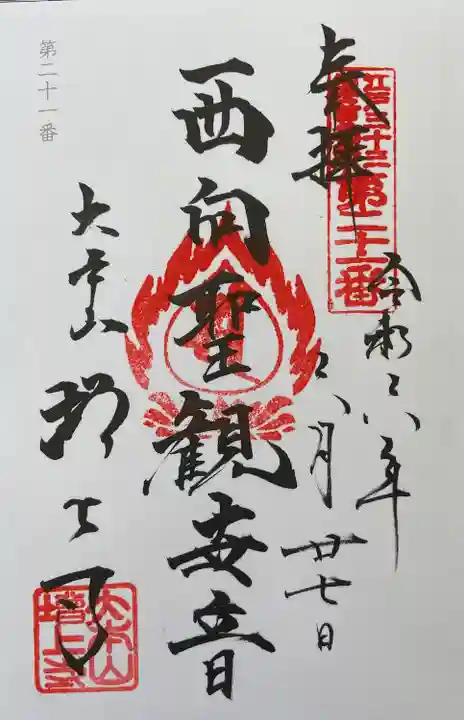 第二十一番
奉拝
江戸三十三
観音札所
第二十一番
令和六年
六月廿七日
西向聖観世音
大本山
増上寺
大本山
増上寺